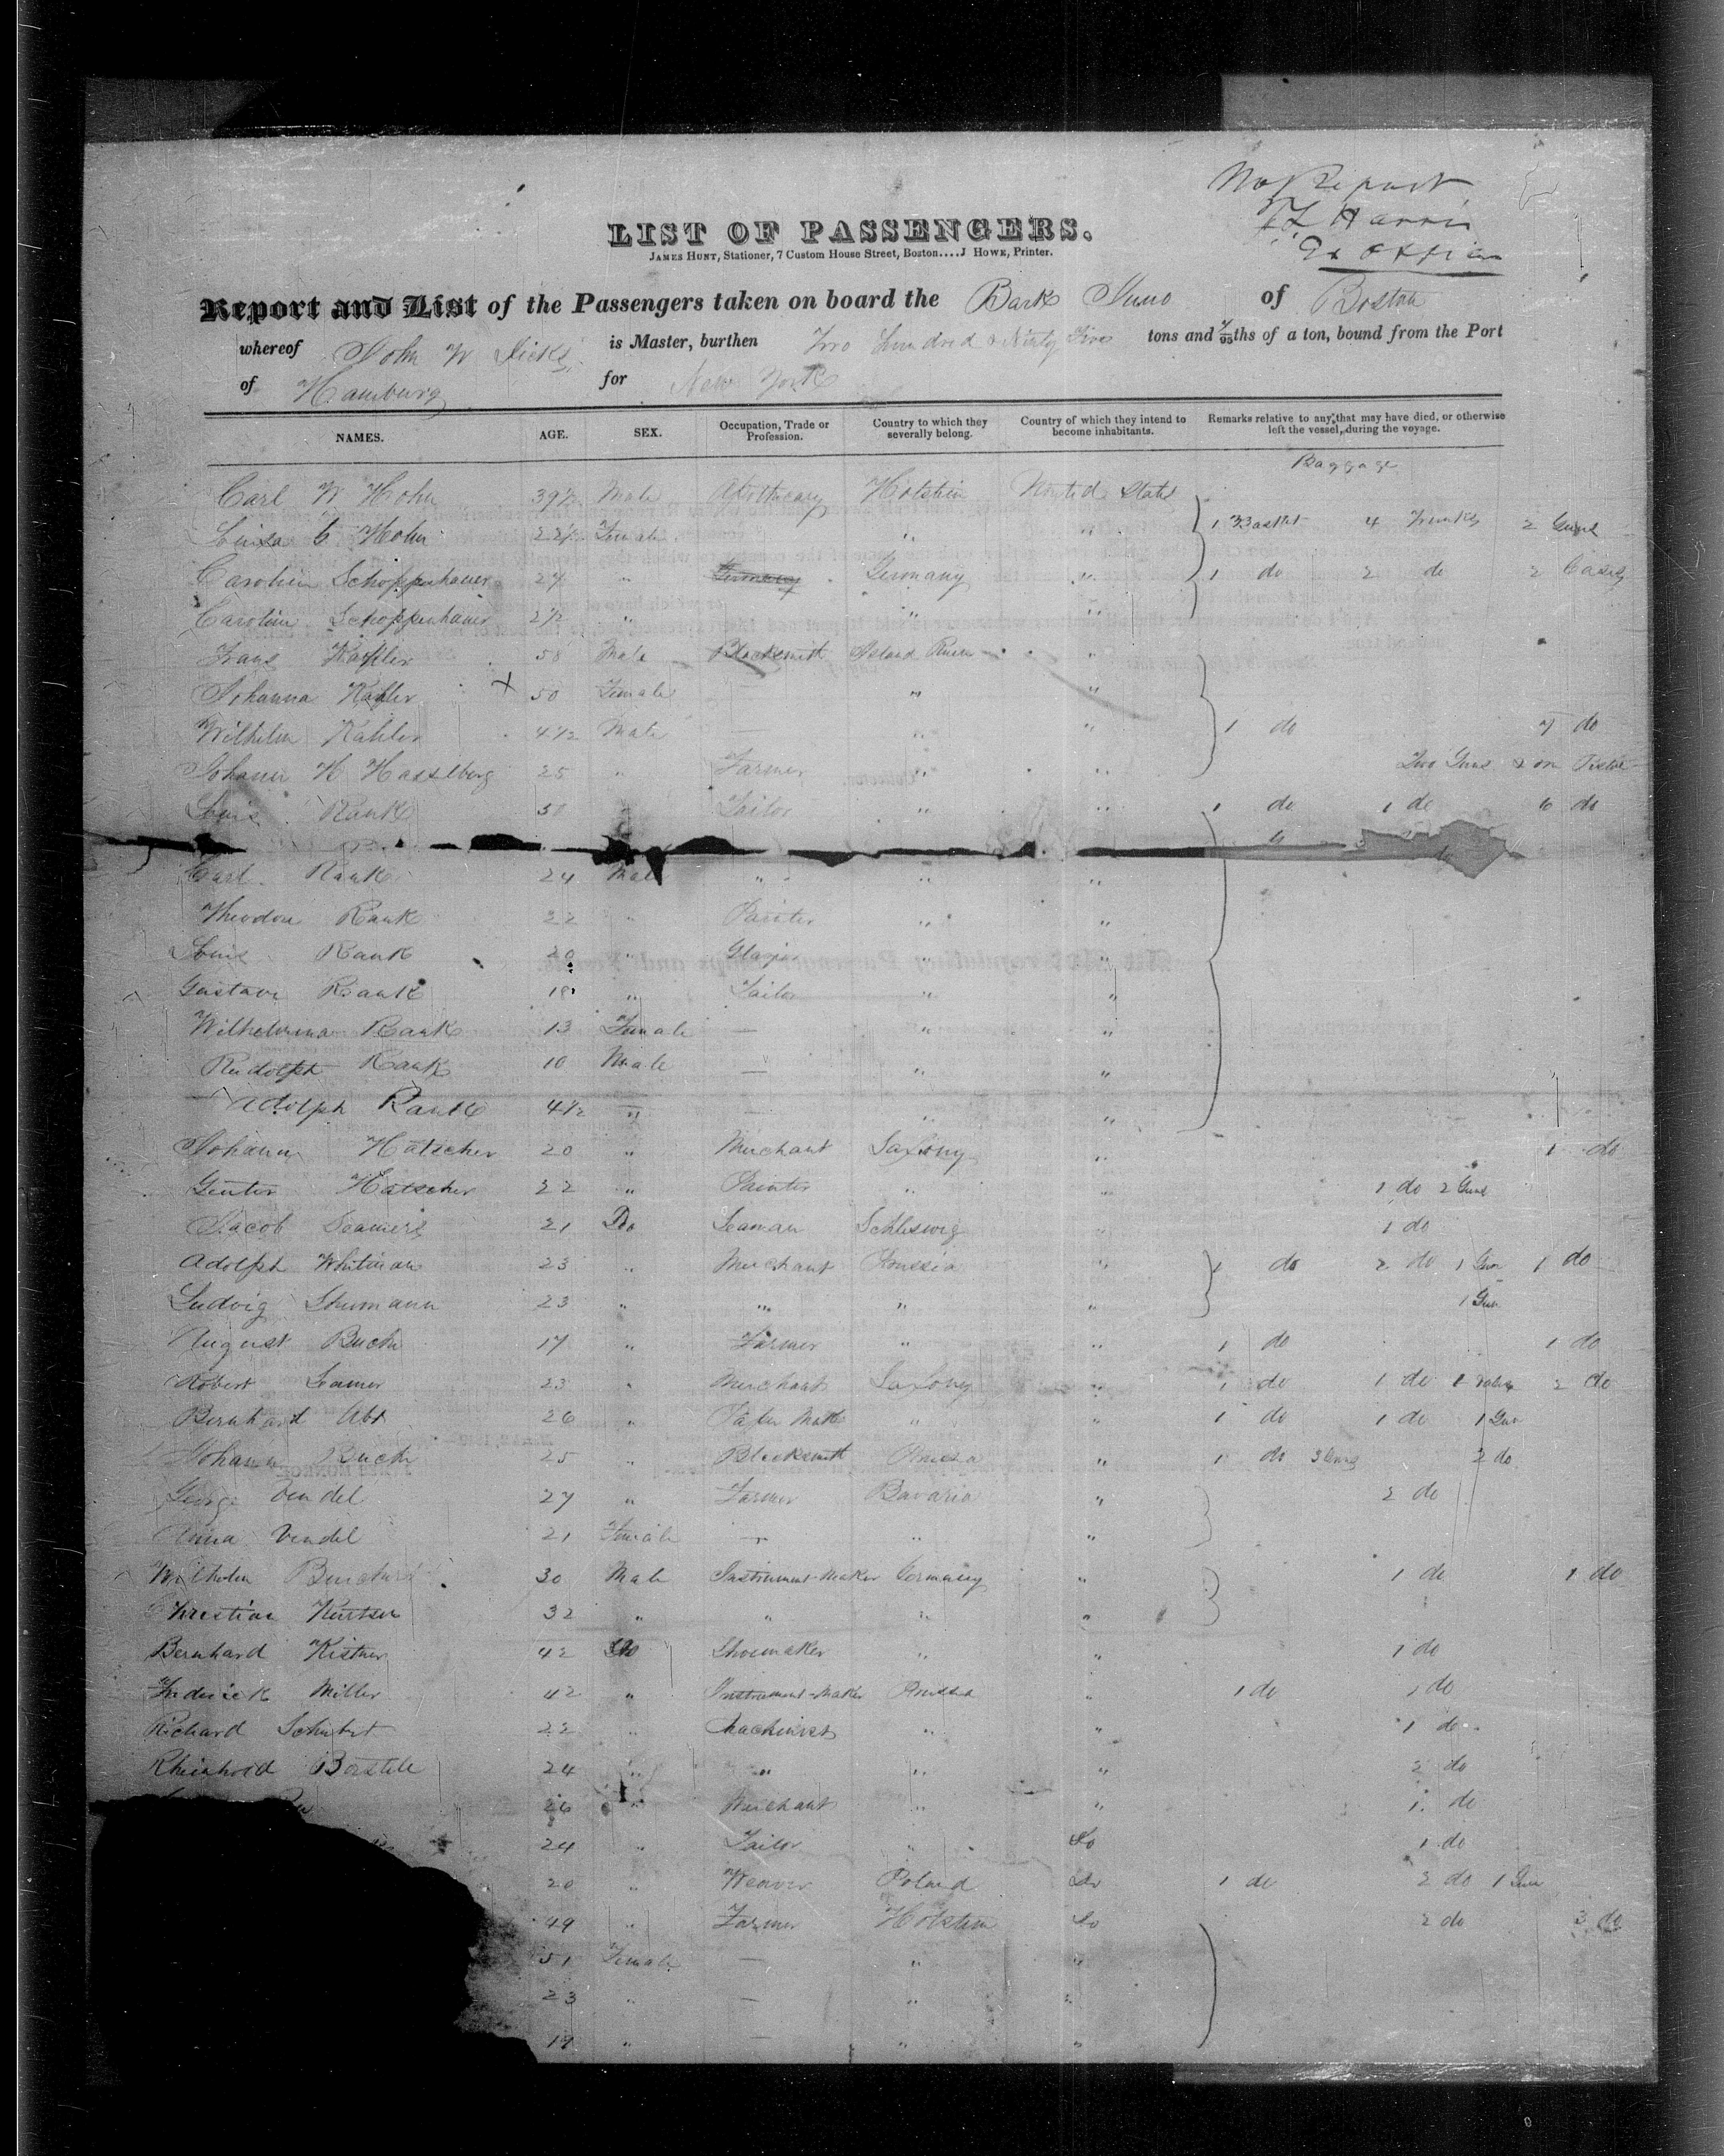 No Report
T. L. Harris
LIST OF PASSENGERS.
JAMES HUNT, Stationer, 7 Custom House Street, Boston....J HOWE, Printer.
Report and List of the Passengers taken on board the Bark Juno of Boston
whereof John W is Master, burthen Two Hundred & Ninty Five tons and /95ths of a ton, bound from the Port
of Hamburg for New York
NAMES. AGE. SEX. Occupation, Trade or Profession. Country to which they severally belong. Country of which they intend to become inhabitants. Remarks relative to any that may have died, or otherwise left the vessel, during the voyage.
Baggage
Carl W Hohn 39½ Male Apothecary Holstein United States
Luisa C Hohn 22½ Female " " 1 Basket 4 Trunks 2 Guns
Carolien Schoppenhauer 27 " Germany Germany " 1 do 2 do 2 Cases
Caroline Schoppenhauer 2½ " " "
Frans Kahler 58 Male Blacksmith Island Rugen "
Johanna Kahler X 50 Female — " "
Wilhelm Kahler 4½ Male — " " 1 do 7 do
Johann H Hasselberg 25 " Farmer " " Two Guns
Louis Rank 50 Tailor " " 1 do 1 do 6 do
Carl Rank 24 Male " " "
Theodore Rank 22 " Painter " "
Louis Rank 20 " Glazier " "
Gustave Rank 18 " Tailor " "
Wilhelmina Rank 13 Female — " "
Rudolph Rank 10 Male — " "
Adolph Rank 4½ " — " "
Johann Hatscher 20 " Merchant Saxony " 1 do
Hatscher 22 " Painter " " 1 do 2 Guns
Jacob 21 Do Seaman Schleswig " 1 do
Adolph Whitman 23 " Merchant Prussia " 1 do 2 do 1 Gun 1 do
Ludvig Shumann 23 " " " " 1 Gun
August Buch 17 " Farmer " " 1 do 1 do
Robert 23 " Merchant Saxony " 1 do 1 do 2 do
Bernhard Abt 26 " Paper Mak " " 1 do 1 do 1 Gun
Johann Buch 25 " Blacksmith Prussia " 1 do 2 do
George Vendel 27 " Farmer Bavaria " 2 do
Anna Vendel 21 Female — " "
Wilhelm 30 Male Instrument-Maker Germany " 1 do 1 do
Christian 32 " " " "
Bernhard Kistner 42 Do Shoemaker " " 1 do
Frederick Miller 42 " Instrument-Maker Prussia " 1 do 1 do
Richard Schubert 22 " Machinist " " 1 do
Rheinhold 24 " " " " 2 do
26 " Merchant " " 1 do
24 " Tailor " Do 1 do
20 " Weaver Poland Do 1 do 2 do 1 Gun
49 " Farmer Holstein Do 2 do 3 do
51 Female — " "
23 " — " "
19 " — " "